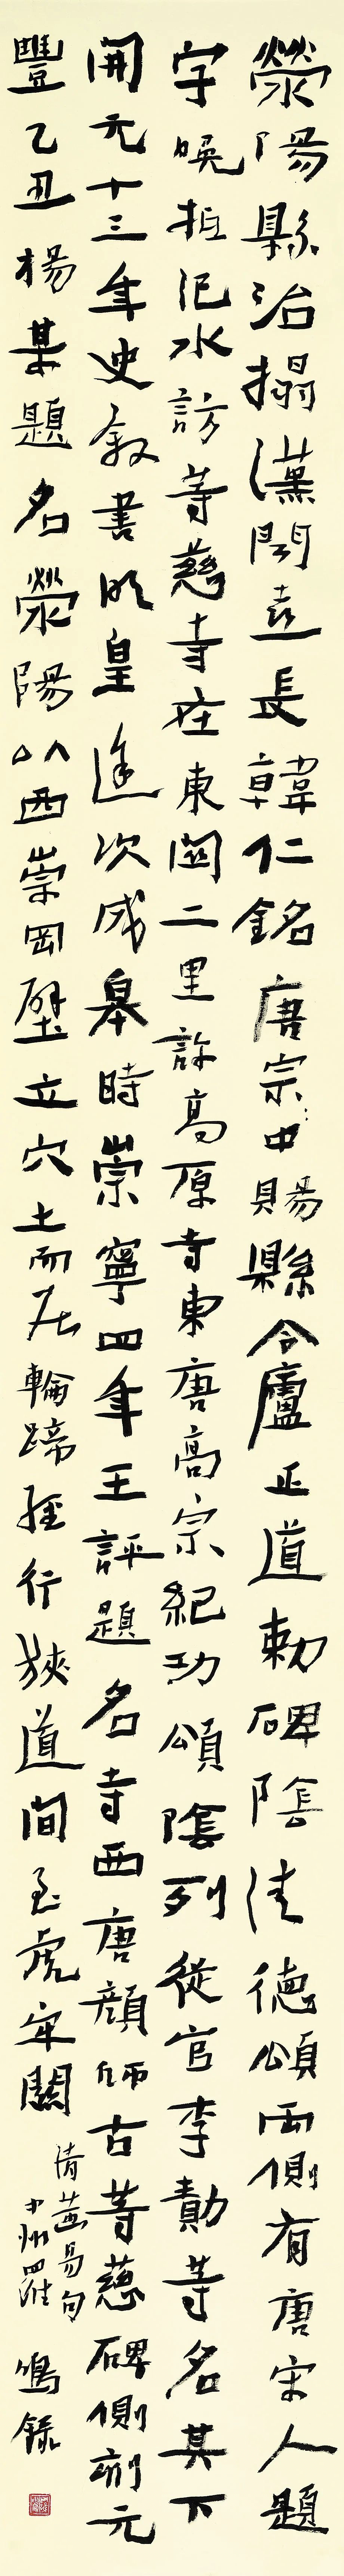 滎陽縣治搨漢聞憙長韓仁銘唐宗中賜縣令廬正道勅碑陰清德頌兩側有唐宋人題
字晚抵汜水訪等慈寺在東關二里許高原寺東唐高宗紀功頌陰列從官李勣等名其下
開元十三年史敘書明皇追次成皋時崇寧四年王評題名寺西唐顏師古等慈碑側刻元
豐乙丑楊某題名滎陽以西崇岡壁立穴土而居輪蹄經行狹道間至虎牢關
清黃易句
中州羅鳴錄